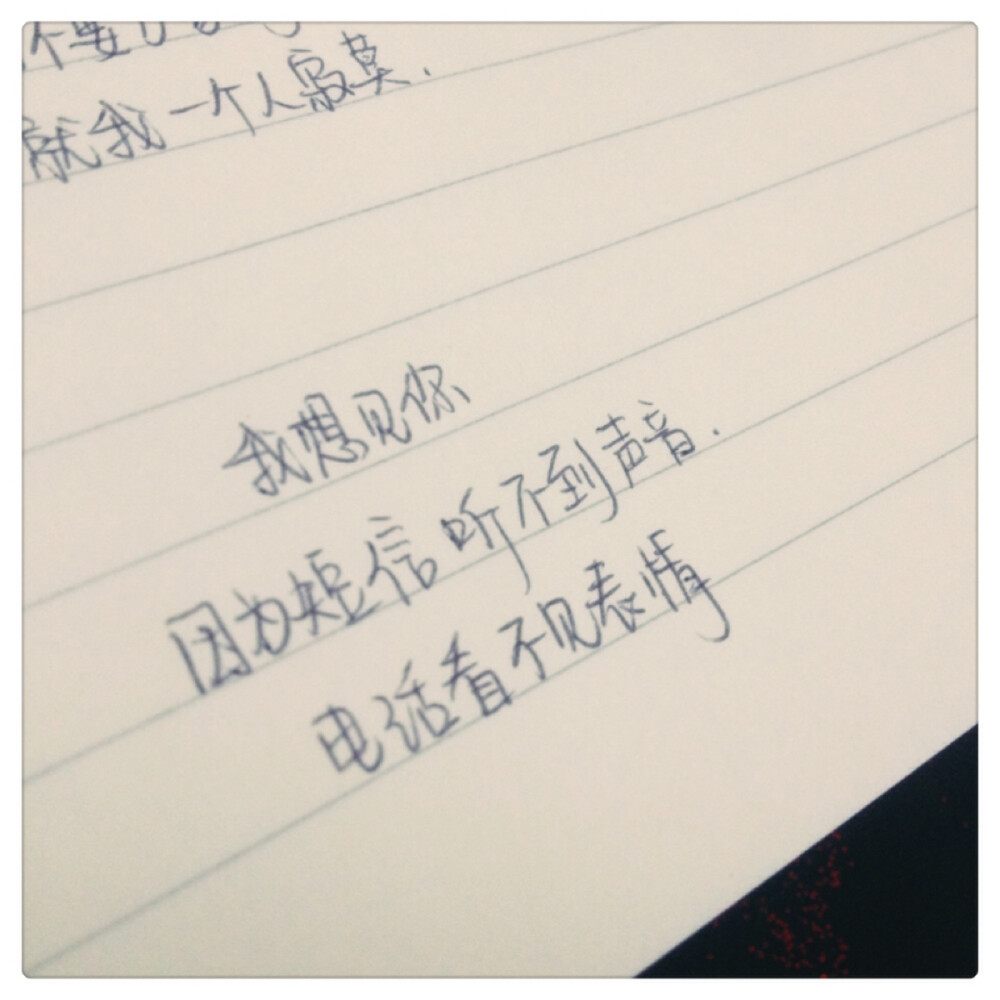 不要
就我一个人寂莫.
我想见你
因为短信听不到声音.
电话看不见表情